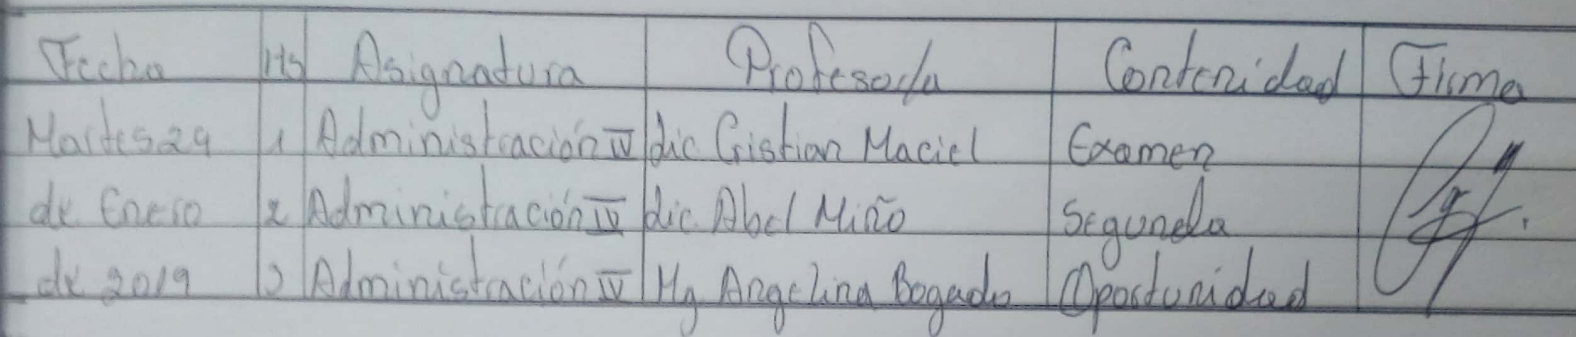 Fecha Hs Asignatura Profesor/a Contenidad Firma
Martes 29 1 Administración IV Lic. Cristian Maciel Examen
de Enero 2 Administración IV Lic. Abel Miño Segunda
de 2019 3 Administración IV Mg Angelina Bogado Oportunidad